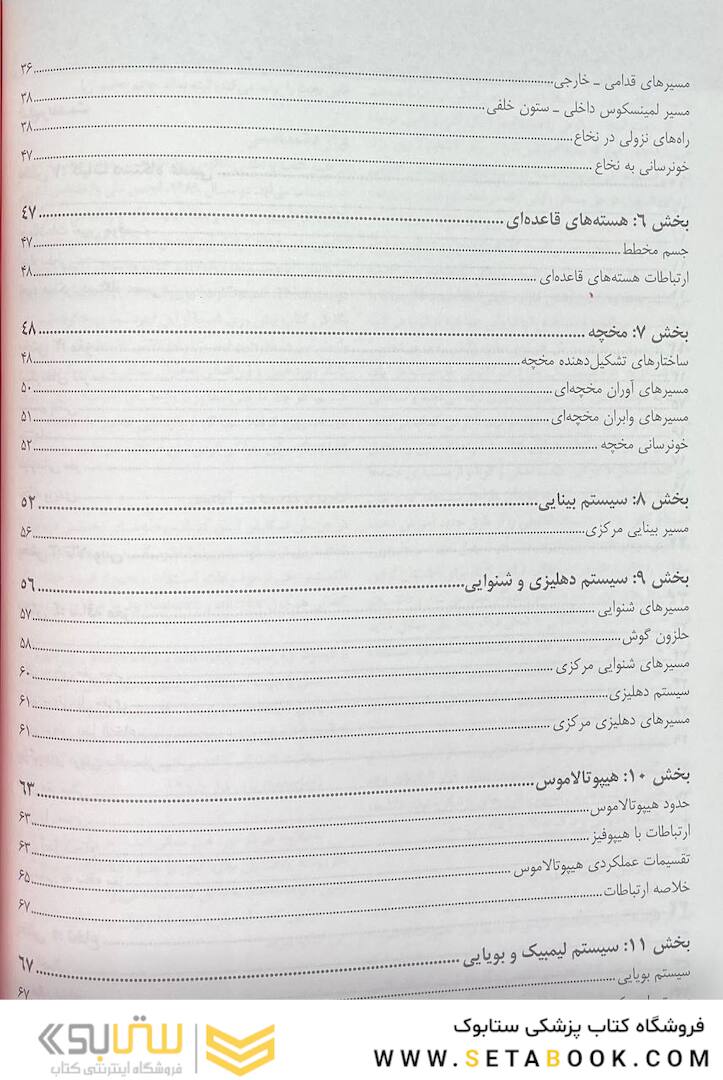 مسیرهای قدامی ـ خارجی ........ ۳۶
مسیر لمینسکوس داخلی ـ ستون خلفی ........ ۳۸
راه‌های نزولی در نخاع ........ ۳۸
خونرسانی به نخاع ........ ۴۷
بخش ۶: هسته‌های قاعده‌ای ........ ۴۷
جسم مخطط ........ ۴۷
ارتباطات هسته‌های قاعده‌ای ........ ۴۸
بخش ۷: مخچه ........ ۴۸
ساختارهای تشکیل‌دهنده مخچه ........ ۴۸
مسیرهای آوران مخچه‌ای ........ ۵۰
مسیرهای وابران مخچه‌ای ........ ۵۱
خونرسانی مخچه ........ ۵۲
بخش ۸: سیستم بینایی ........ ۵۲
مسیر بینایی مرکزی ........ ۵۶
بخش ۹: سیستم دهلیزی و شنوایی ........ ۵۶
مسیرهای شنوایی ........ ۵۷
حلزون گوش ........ ۵۸
مسیرهای شنوایی مرکزی ........ ۶۰
سیستم دهلیزی ........ ۶۱
مسیرهای دهلیزی مرکزی ........ ۶۱
بخش ۱۰: هیپوتالاموس ........ ۶۳
حدود هیپوتالاموس ........ ۶۳
ارتباطات با هیپوفیز ........ ۶۳
تقسیمات عملکردی هیپوتالاموس ........ ۶۵
خلاصه ارتباطات ........ ۶۷
بخش ۱۱: سیستم لیمبیک و بویایی ........ ۶۷
سیستم بویایی ........ ۶۷
فروشگاه کتاب پزشکی ستابوک
WWW.SETABOOK.COM
ستابوک
فروشگاه اینترنتی کتاب